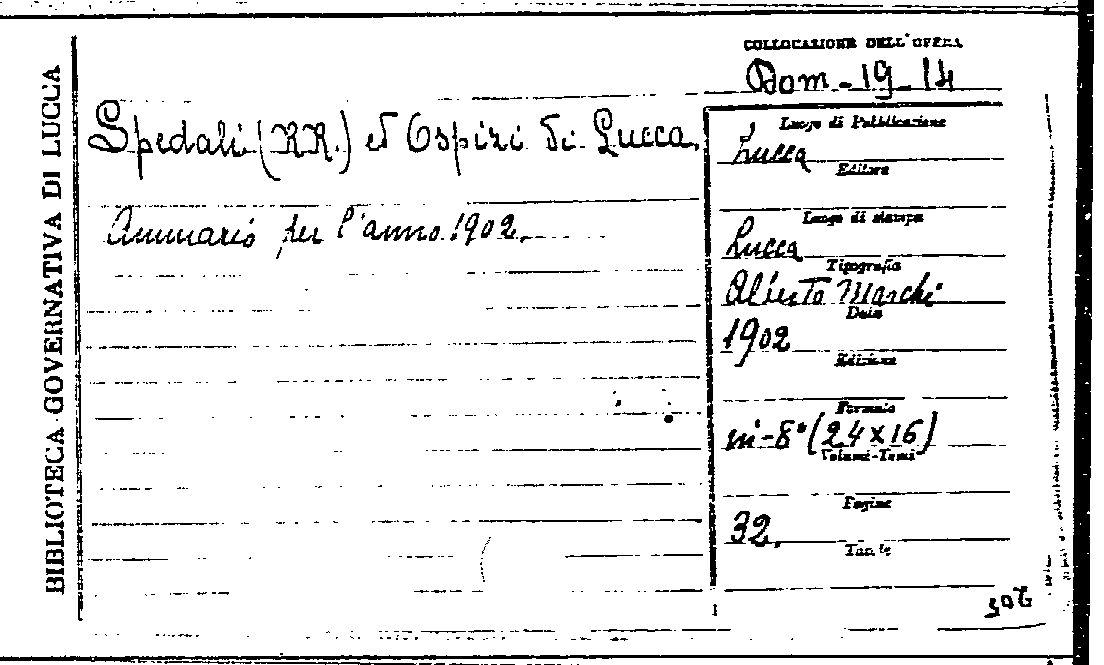 BIBLIOTECA GOVERNATIVA DI LUCCA
COLLOCAZIONE DELL'OPERA
Dom-19-14
Spedali (RR.) ed Ospizi di Lucca.
Annuario per l'anno 1902.
Luogo di Pubblicazione
Lucca
Editore
Luogo di stampa
Lucca
Tipografia
Alberto Marchi
Data
1902
Edizione
Formato
in-8° (24x16)
Volumi-Tomi
Pagine
32.
Tavole